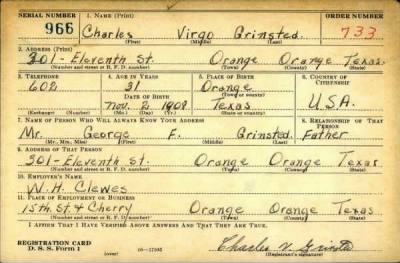 SERIAL NUMBER 1. NAME (Print) ORDER NUMBER
966 Charles Virgo Grinsted 733
(First) (Middle) (Last)
2. ADDRESS (Print)
301- Eleventh St. Orange Orange Texas
(Number and street or R. F. D. number) (Town) (County) (State)
3. TELEPHONE 4. AGE IN YEARS 5. PLACE OF BIRTH 6. COUNTRY OF CITIZENSHIP
602 31 Orange
DATE OF BIRTH (Town or county)
Nov. 2, 1908 Texas U.S.A.
(Exchange) (Number) (Mo.) (Day) (Yr.) (State or country)
7. NAME OF PERSON WHO WILL ALWAYS KNOW YOUR ADDRESS 8. RELATIONSHIP OF THAT PERSON
Mr. George F. Grinsted Father
(Mr., Mrs., Miss) (First) (Middle) (Last)
9. ADDRESS OF THAT PERSON
301-Eleventh St. Orange Orange Texas
(Number and street or R. F. D. number) (Town) (County) (State)
10. EMPLOYER'S NAME
W. H. Clewes
11. PLACE OF EMPLOYMENT OR BUSINESS
15th St. & Cherry Orange Orange Texas
(Number and street or R. F. D. number) (Town) (County) (State)
I AFFIRM THAT I HAVE VERIFIED ABOVE ANSWERS AND THAT THEY ARE TRUE.
REGISTRATION CARD
D. S. S. Form 1 (over) Charles V. Grinsted
(Registrant's signature)